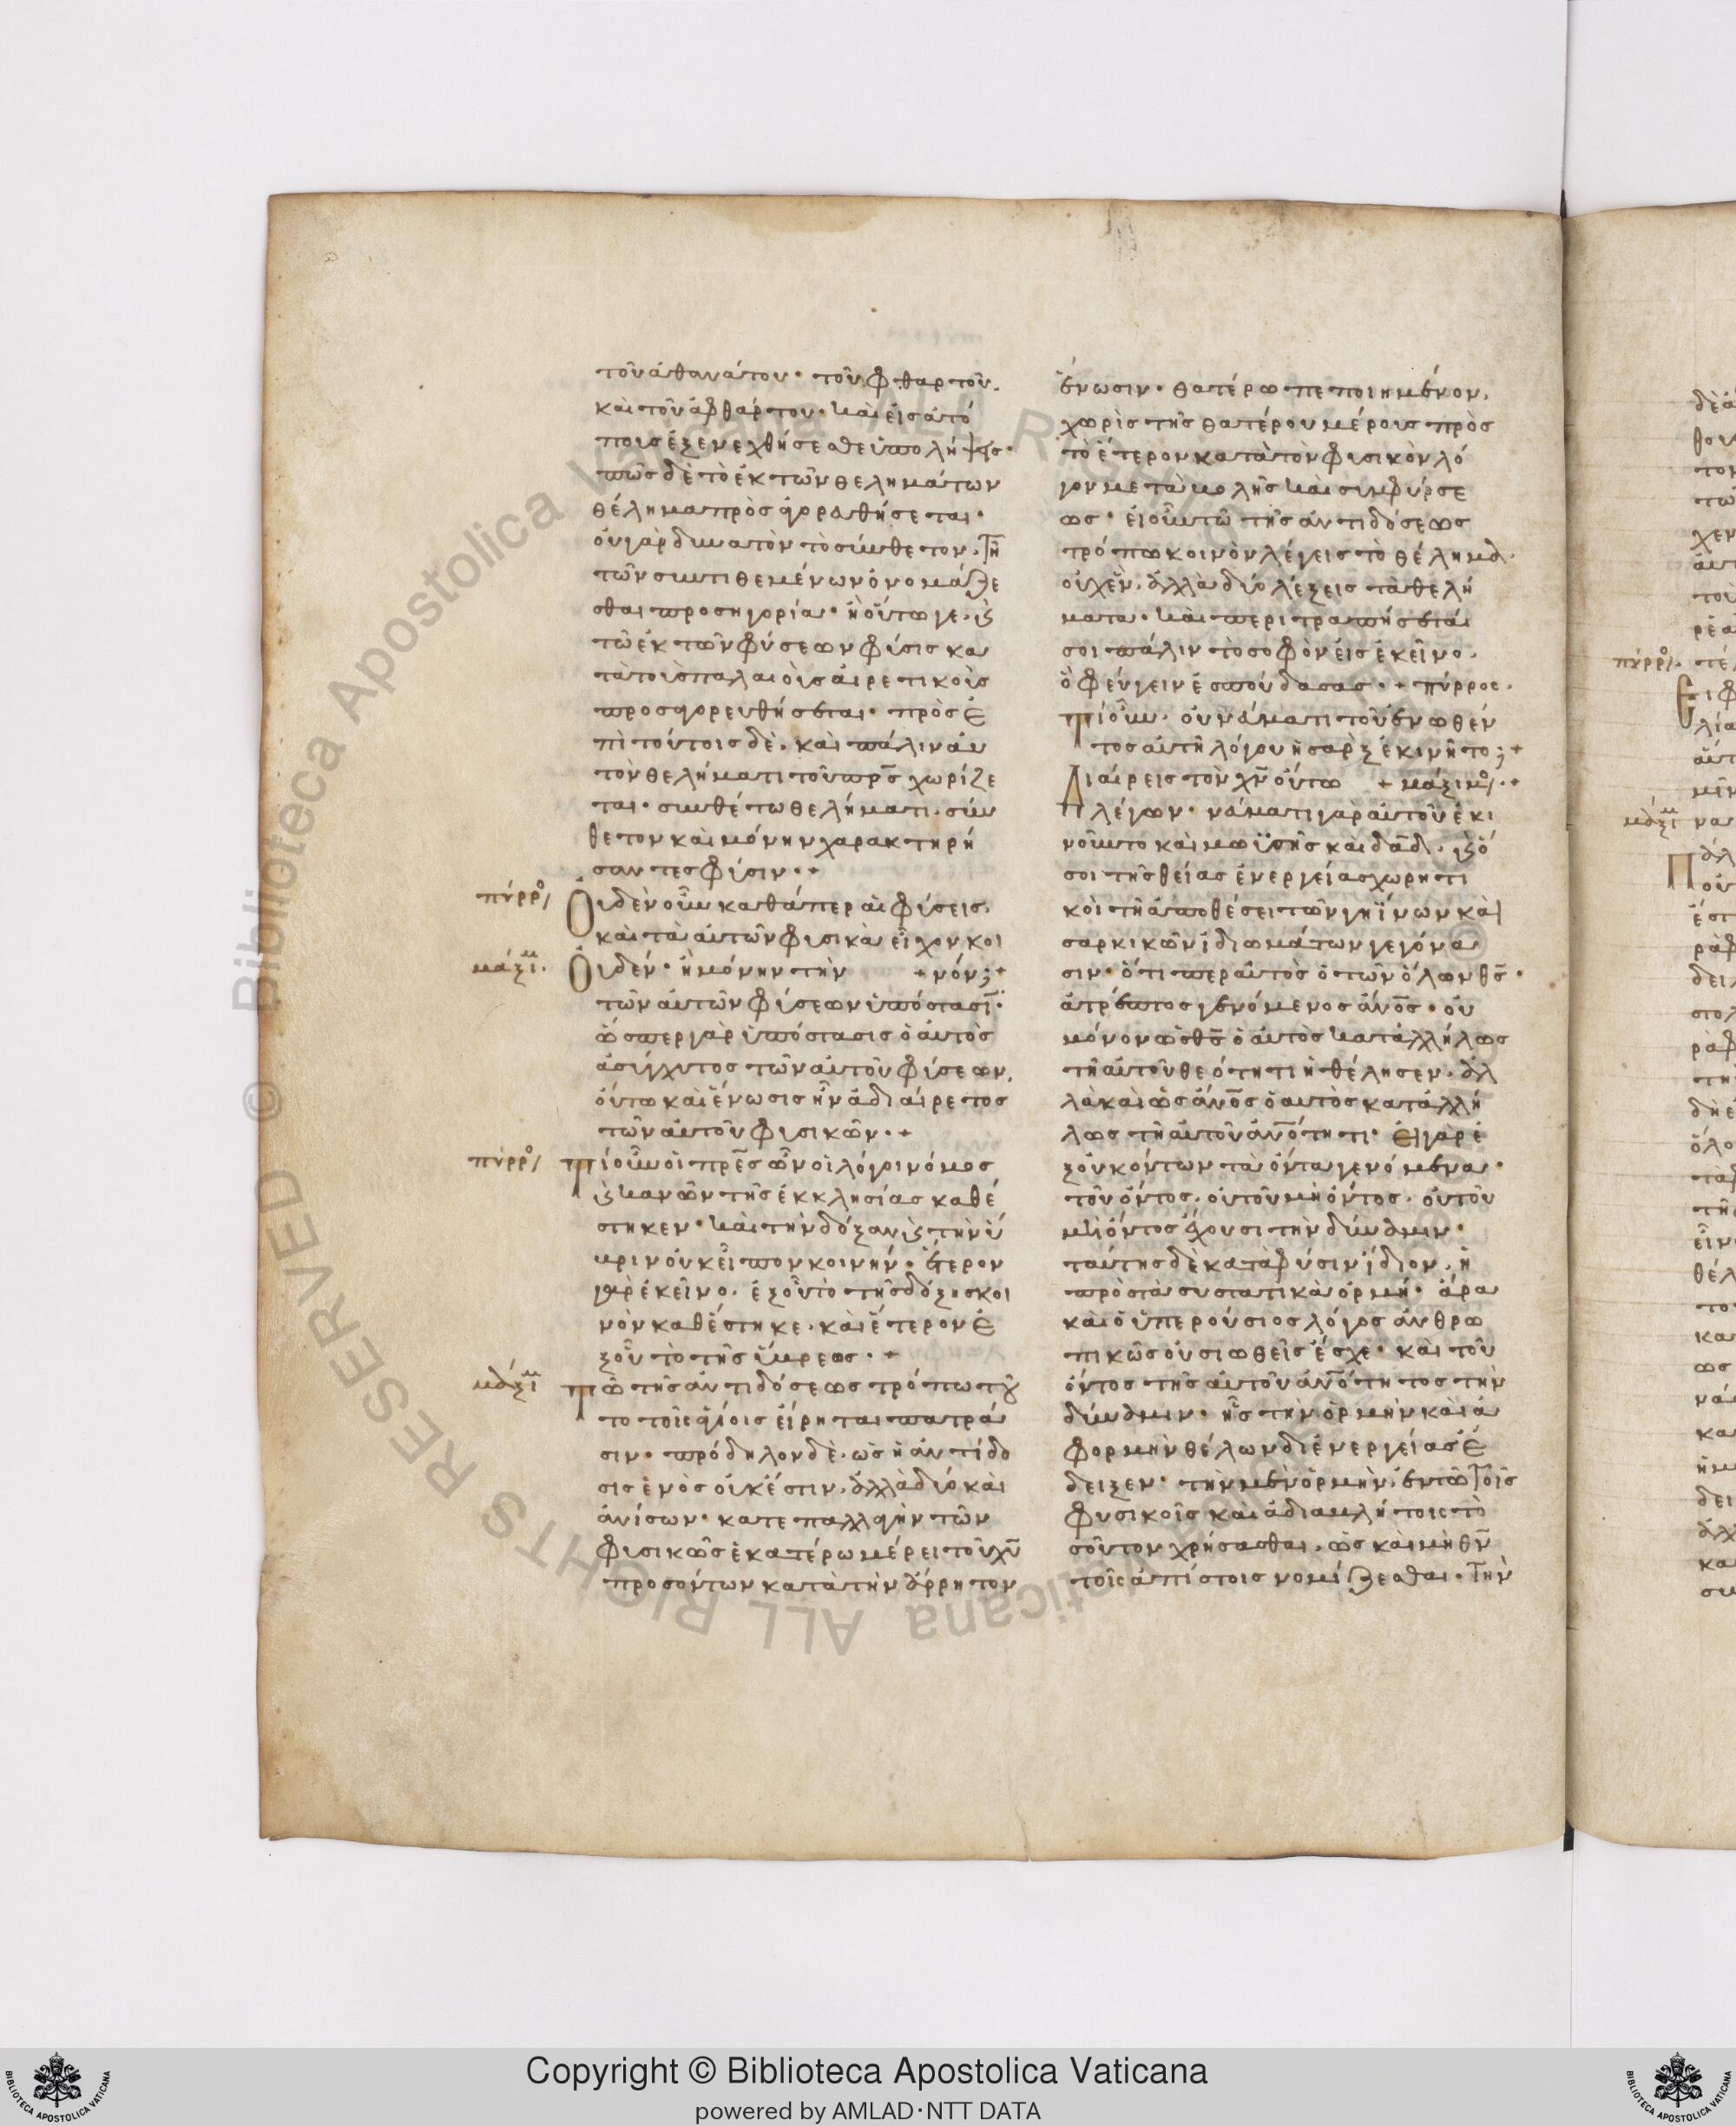 τοῦ ἀθανάτου· τοῦ φθαρτοῦ.
καὶ τοῦ ἀφθάρτου· καὶ εἰς ἀτό
ποις ἐξενεχθήσεσθε ὑπολήψεις·
πῶς δὲ τὸ ἐκ τῶν θελημάτων
θέλημα προσαγορευθήσεται·
οὐ γὰρ δυνατὸν τὸ σύνθετον. τῆ
τῶν συντιθεμένων ὀνομάζε
σθαι προσηγορία· ἢ οὕτω γε. καὶ
τὸ ἐκ τῶν φύσεων φύσις κα
τὰ τοὺς παλαιοὺς αἱρετικοὺς
προσαγορευθήσεται· πρὸς ἐ
πὶ τούτοις δὲ. καὶ πάλιν αὐ
τὸν θελήματι τοῦ πρς χωρίζε
ται· συνθέτω θελήματι. σύν
θετον καὶ μόνην χαρακτηρή
σαντες φύσιν·+
πύρρο/ Οὐδὲν οὖν καθάπερ αἱ φύσεις.
καὶ τὰ αὐτῶν φυσικὰ εἶχον κοι
+νόν;+
μάξιμ. Οὐδέν· ἢ μόνην τὴν
τῶν αὐτῶν φύσεων ὑπόστασιν·
ὥσπερ γὰρ ὑπόστασις ὁ αὐτὸς
ἀσύγχυτος τῶν αὐτοῦ φύσεων.
οὕτω καὶ ἕνωσις ἦν ἀδιαίρετος
τῶν αὐτοῦ φυσικῶν·+
πύρρο/ Τί οὖν οἱ πρες ὧν οἱ λόγοι νόμος
καὶ κανὼν τῆς ἐκκλησίας καθέ
στηκεν· καὶ τὴν δόξαν καὶ τὴν ὕ
βριν οὐκ εἶπον κοινήν· ἕτερον
γὰρ ἐκεῖνο. ἐξ οὗ τὸ τῆς δόξης κοι
νὸν καθέστηκε. καὶ ἕτερον ἐ
ξ οὗ τὸ τῆς ὕβρεως·+
μάξιμ Τῶ τῆς ἀντιδόσεως τρόπω τοῦ
το τοῖς ἁγίοις εἴρηται πατρά
σιν· πρόδηλον δὲ. ὡς ἡ ἀντίδο
σις ἑνὸς οὐκ ἔστιν. ἀλλὰ δύο καὶ
ἀνίσων· κατ' ἐπαλλαγὴν τῶν
φυσικῶς ἑκατέρω μέρει τοῦ χῦ
προσόντων κατὰ τὴν ἄρρητον
ἕνωσιν· θατέρω πεποιημένον.
χωρὶς τῆς θατέρου μέρους πρὸς
τὸ ἕτερον κατὰ τὸν φυσικὸν λό
γον μεταβολῆς καὶ συμφύρσε
ως· εἰ οὖν τῶ τῆς ἀντιδόσεως
τρόπω κοινὸν λέγεις τὸ θέλημα.
οὐχ ἓν. ἀλλὰ δύο λέξεις τὰ θελή
ματα· καὶ περιτραπήσεταί
σοι πάλιν τὸ σοφὸν εἰς ἐκεῖνο.
ὃ φεύγειν ἐσπούδασας·+ πύρρος.
Τί οὖν. οὐ νεύματι τοῦ ἑνωθέν
τος αὐτῆ λόγου ἡ σὰρξ ἐκινεῖτο;+
Διαίρεις τὸν χν οὕτω + μάξιμο/·+
λέγων· νεύματι γὰρ αὐτοῦ ἐκι
νοῦντο καὶ μωϋσῆς καὶ δαδ. καὶ ὅ
σοι τῆς θείας ἐνεργείας χωρητι
κοὶ τῆ ἀποθέσει τῶν γηΐνων καὶ
σαρκικῶν ἰδιωμάτων γεγόνα
σιν· ὅτιπερ αὐτὸς ὁ τῶν ὅλων θς·
ἀτρέπτως γενόμενος ἄνος· οὐ
μόνον ὡς θς ὁ αὐτὸς καταλλήλως
τῆ αὐτοῦ θεότητι ἠθέλησεν. ἀλ
λὰ καὶ ὡς ἄνος ὁ αὐτὸς καταλλή
λως τῆ αὐτοῦ ἀνότητι· εἰ γὰρ ἐ
ξ οὐκ ὄντων τὰ ὄντα γενόμενα·
τοῦ ὄντος. οὐ τοῦ μὴ ὄντος. οὐ τοῦ
μὴ ὄντος ἔχουσι τὴν δύναμιν·
ταύτης δὲ κατὰ φύσιν ἴδιον. ἡ
πρὸς τὰ συστατικὰ ὁρμή· ἄρα
καὶ ὁ ὑπερούσιος λόγος ἀνθρω
πικῶς οὐσιωθεὶς ἔσχε· καὶ τοῦ
ὄντος τῆς αὐτοῦ ἀνότητος τὴν
δύναμιν· ἧς τὴν ὁρμὴν καὶ ἀ
φορμὴν θέλων δι' ἐνεργείας ἔ
δειξεν· τὴν μὲν ὁρμὴν. ἐν τῶ τοῖς
φυσικοῖς καὶ ἀδιαβλήτοις το
σοῦτον χρήσασθαι. ὡς καὶ μὴ θν
τοῖς ἀπίστοις νομίζεσθαι· τὴν